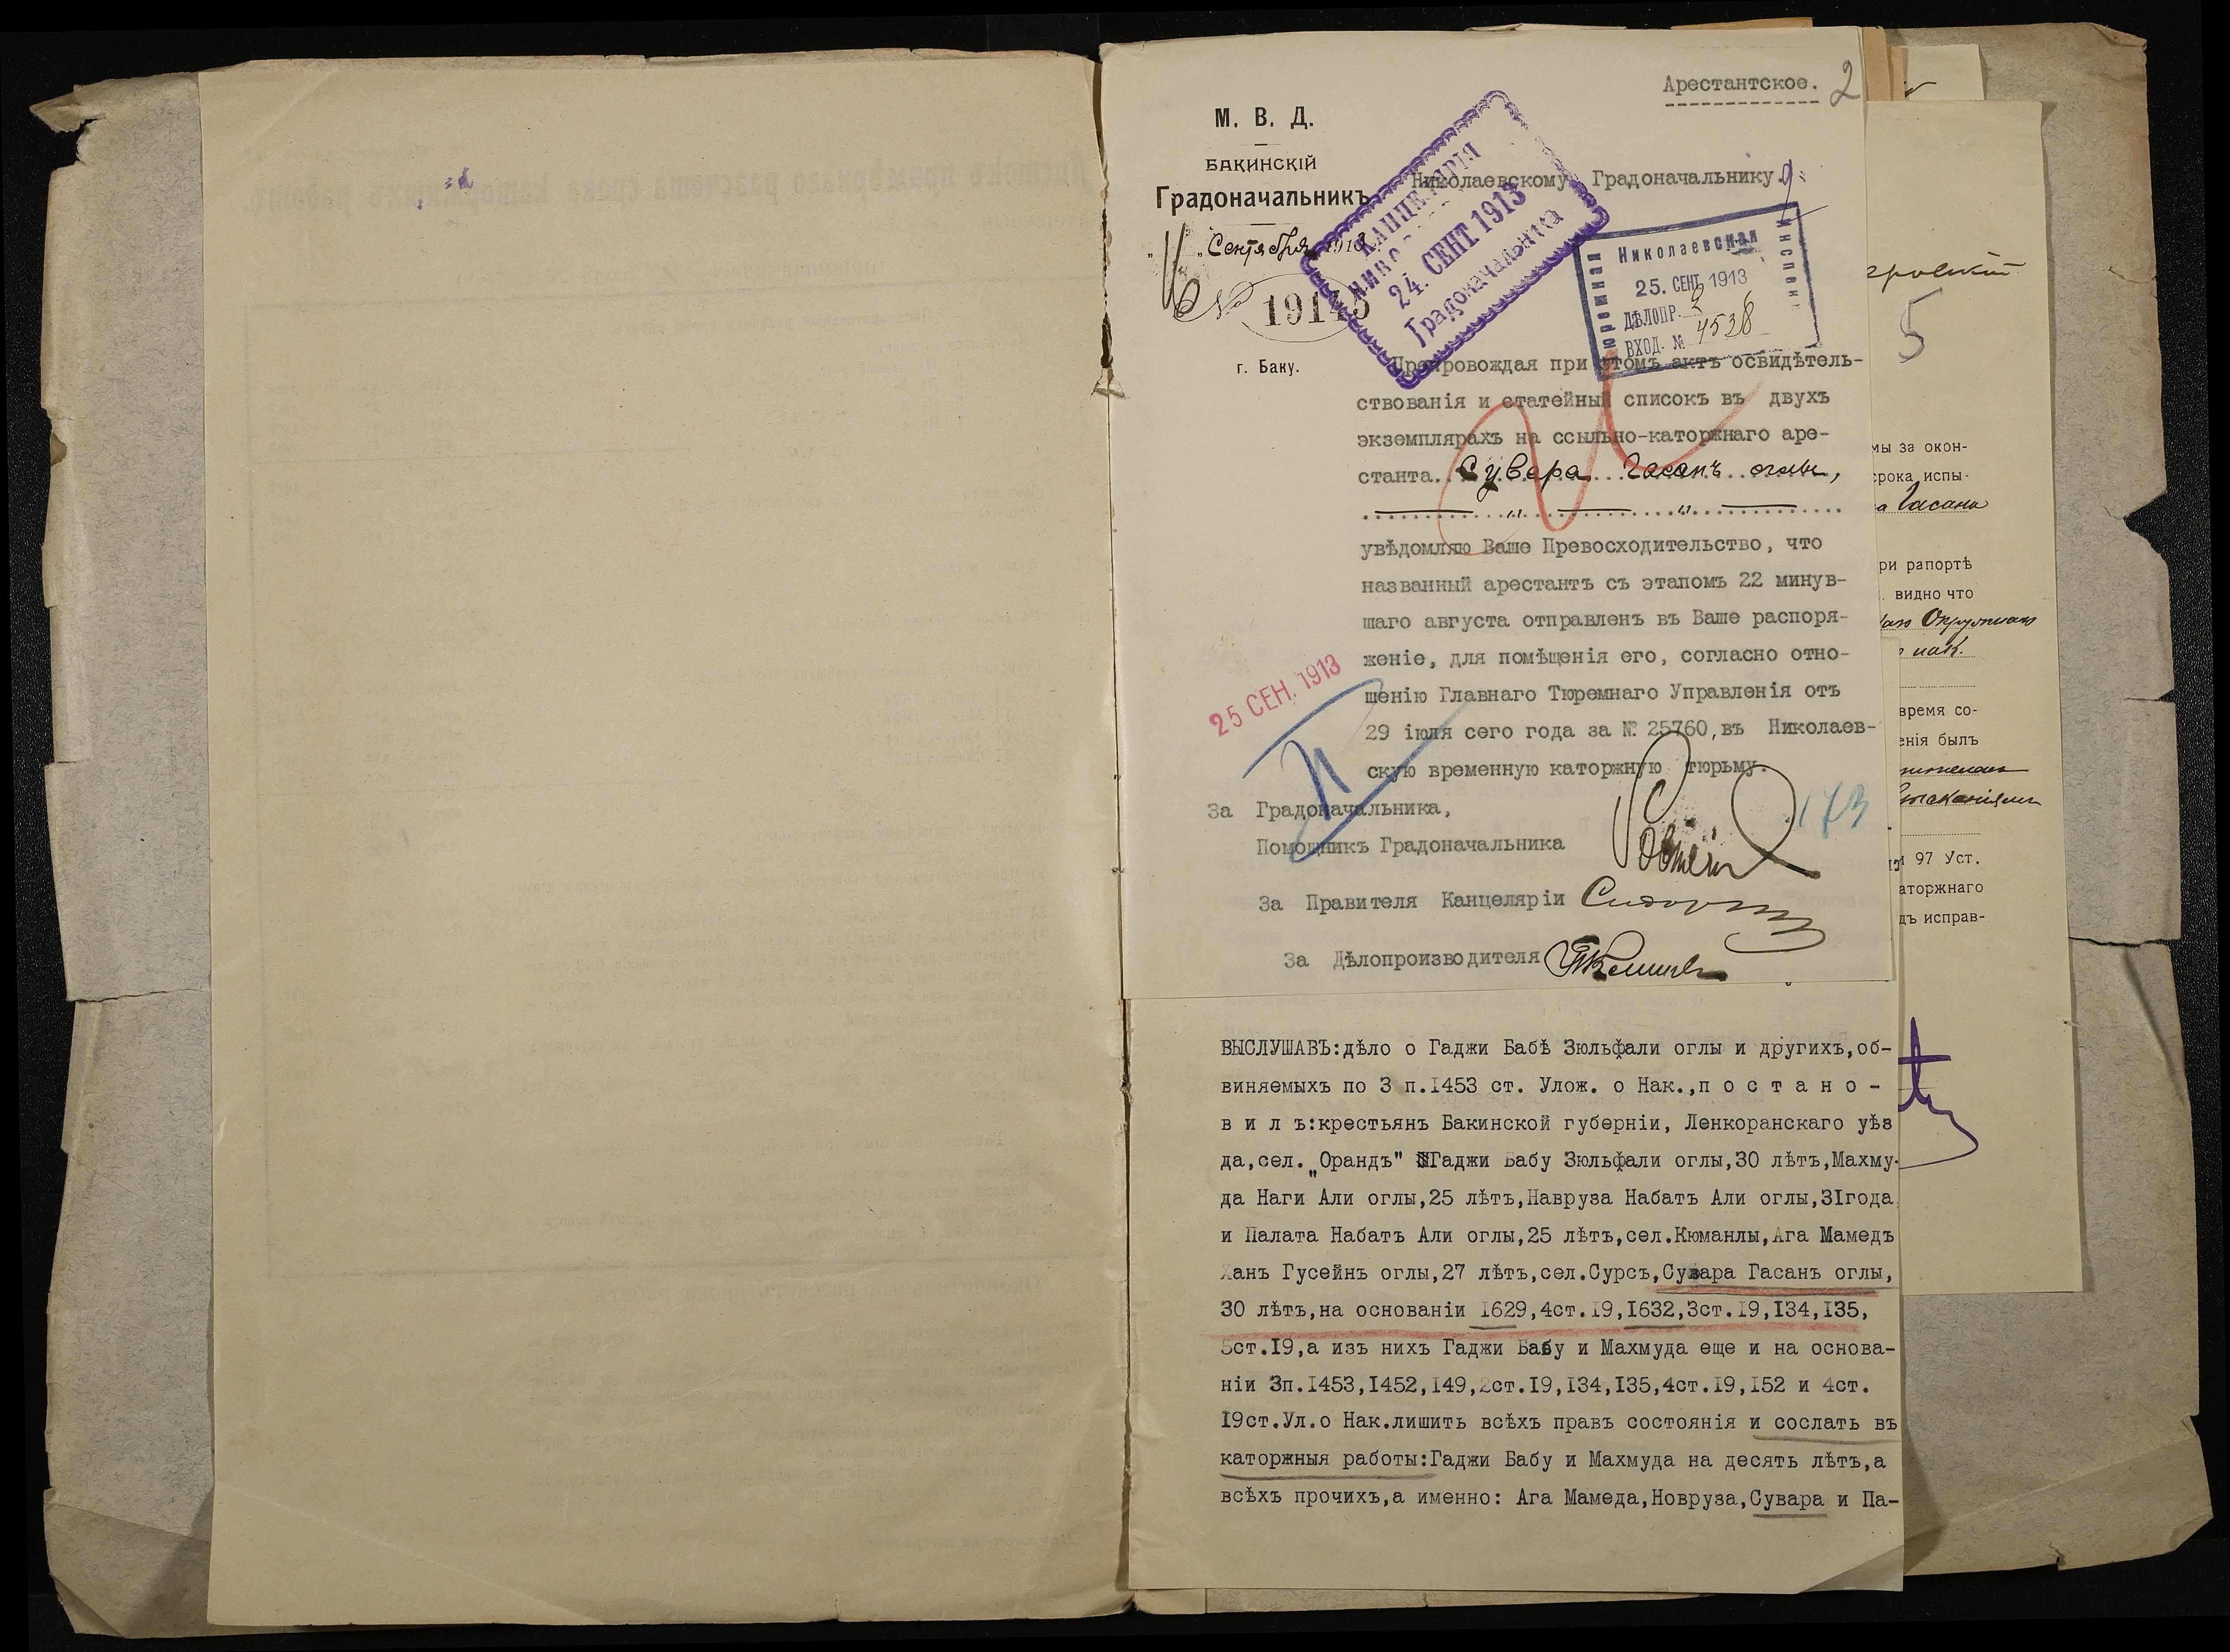 Арестантское. 2
М. В. Д.
БАКИНСКІЙ
Градоначальникъ
Сентября 1913
№ 19145
г. Баку.
Николаевскому Градоначальнику.
КАНЦЕЛЯРІЯ
24. СЕНТ 1913
Градоначальника
Николаевская
Тюремная
Инспек.
25. СЕНТ 1913
ДѢЛОПР. 2
ВХОД. № 4538
Препровождая при этомъ актъ освидѣтель-
ствованія и статейный списокъ въ двухъ
экземплярахъ на ссыльно-каторжнаго аре-
станта Сувара Гасанъ оглы,
увѣдомляю Ваше Превосходительство, что
названный арестантъ съ этапомъ 22 минув-
шаго августа отправленъ въ Ваше распоря-
женіе, для помѣщенія его, согласно отно-
шенію Главнаго Тюремнаго Управленія отъ
29 іюля сего года за № 25760, въ Николаев-
скую временную каторжную тюрьму.
25 СЕН. 1913
За Градоначальника,
Помощникъ Градоначальника
173
За Правителя Канцеляріи
За Дѣлопроизводителя
ВЫСЛУШАВЪ:дѣло о Гаджи Бабѣ Зюльфали оглы и другихъ,об-
виняемыхъ по 3 п.I453 ст. Улож. о Нак.,п о с т а н о -
в и л ъ:крестьянъ Бакинской губерніи, Ленкоранскаго уѣз
да,сел.„Орандъ" Гаджи Бабу Зюльфали оглы,30 лѣтъ,Махму-
да Наги Али оглы,25 лѣтъ,Навруза Набатъ Али оглы,3Iгода
и Палата Набатъ Али оглы,25 лѣтъ,сел.Кюманлы,Ага Мамедъ
Ханъ Гусейнъ оглы,27 лѣтъ,сел.Сурсъ,Сувара Гасанъ оглы,
30 лѣтъ,на основаніи I629,4ст.I9,I632,3ст.I9,I34,I35,
5ст.I9,а изъ нихъ Гаджи Бабу и Махмуда еще и на основа-
ніи 3п.I453,I452,I49,2ст.I9,I34,I35,4ст.I9,I52 и 4ст.
I9ст.Ул.о Нак.лишить всѣхъ правъ состоянія и сослать въ
каторжныя работы:Гаджи Бабу и Махмуда на десять лѣтъ,а
всѣхъ прочихъ,а именно: Ага Мамеда,Новруза,Сувара и Па-
5
мы за окон-
срока испы-
а Гасана
ри рапортѣ
видно что
Окружнаго
нак.
время со-
енія былъ
и 97 Уст.
аторжнаго
дъ исправ-